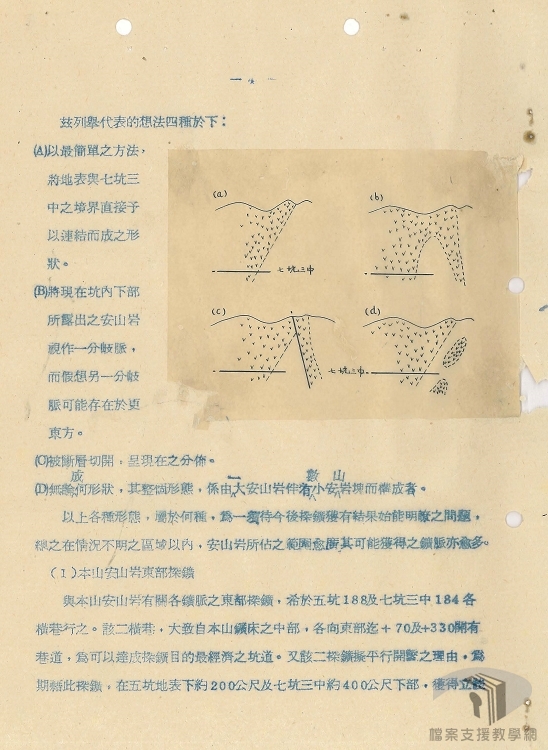 一 4
茲列舉代表的想法四種於下：
(A)以最簡單之方法，
將地表與七坑三
中之境界直接予
以連結而成之形
狀。
(B)將現在坑內下部
所露出之安山岩
視作一分歧脈，
而假想另一分歧
脈可能存在於更
東方。
(a)
(b)
七坑三中
(c)
(d)
七坑三中
(C)被斷層切開，呈現在之分佈。
成 一 數 山
(D)無論何形狀，其整個形態，係由大安山岩伴有小安岩塊而構成者。
以上各種形態，屬於何種，為一 待今後探鑛獲有結果始能明瞭之問題，
總之在情況不明之區域以內，安山岩所佔之範圍愈廣其可能獲得之鑛脈亦愈多。
(1)本山安山岩東部探鑛
與本山安山岩有關各鑛脈之東部探鑛，希於五坑188及七坑三中184各
橫巷行之。該二橫巷，大致自本山鑛床之中部，各向東部迄＋70及+330開有
巷道，為可以達成探鑛目的最經濟之坑道。又該二探鑛擬平行開鑿之理由，為
期藉此探鑛，在五坑地表下約200公尺及七坑三中約400公尺下部，獲得立體
檔案支援教學網